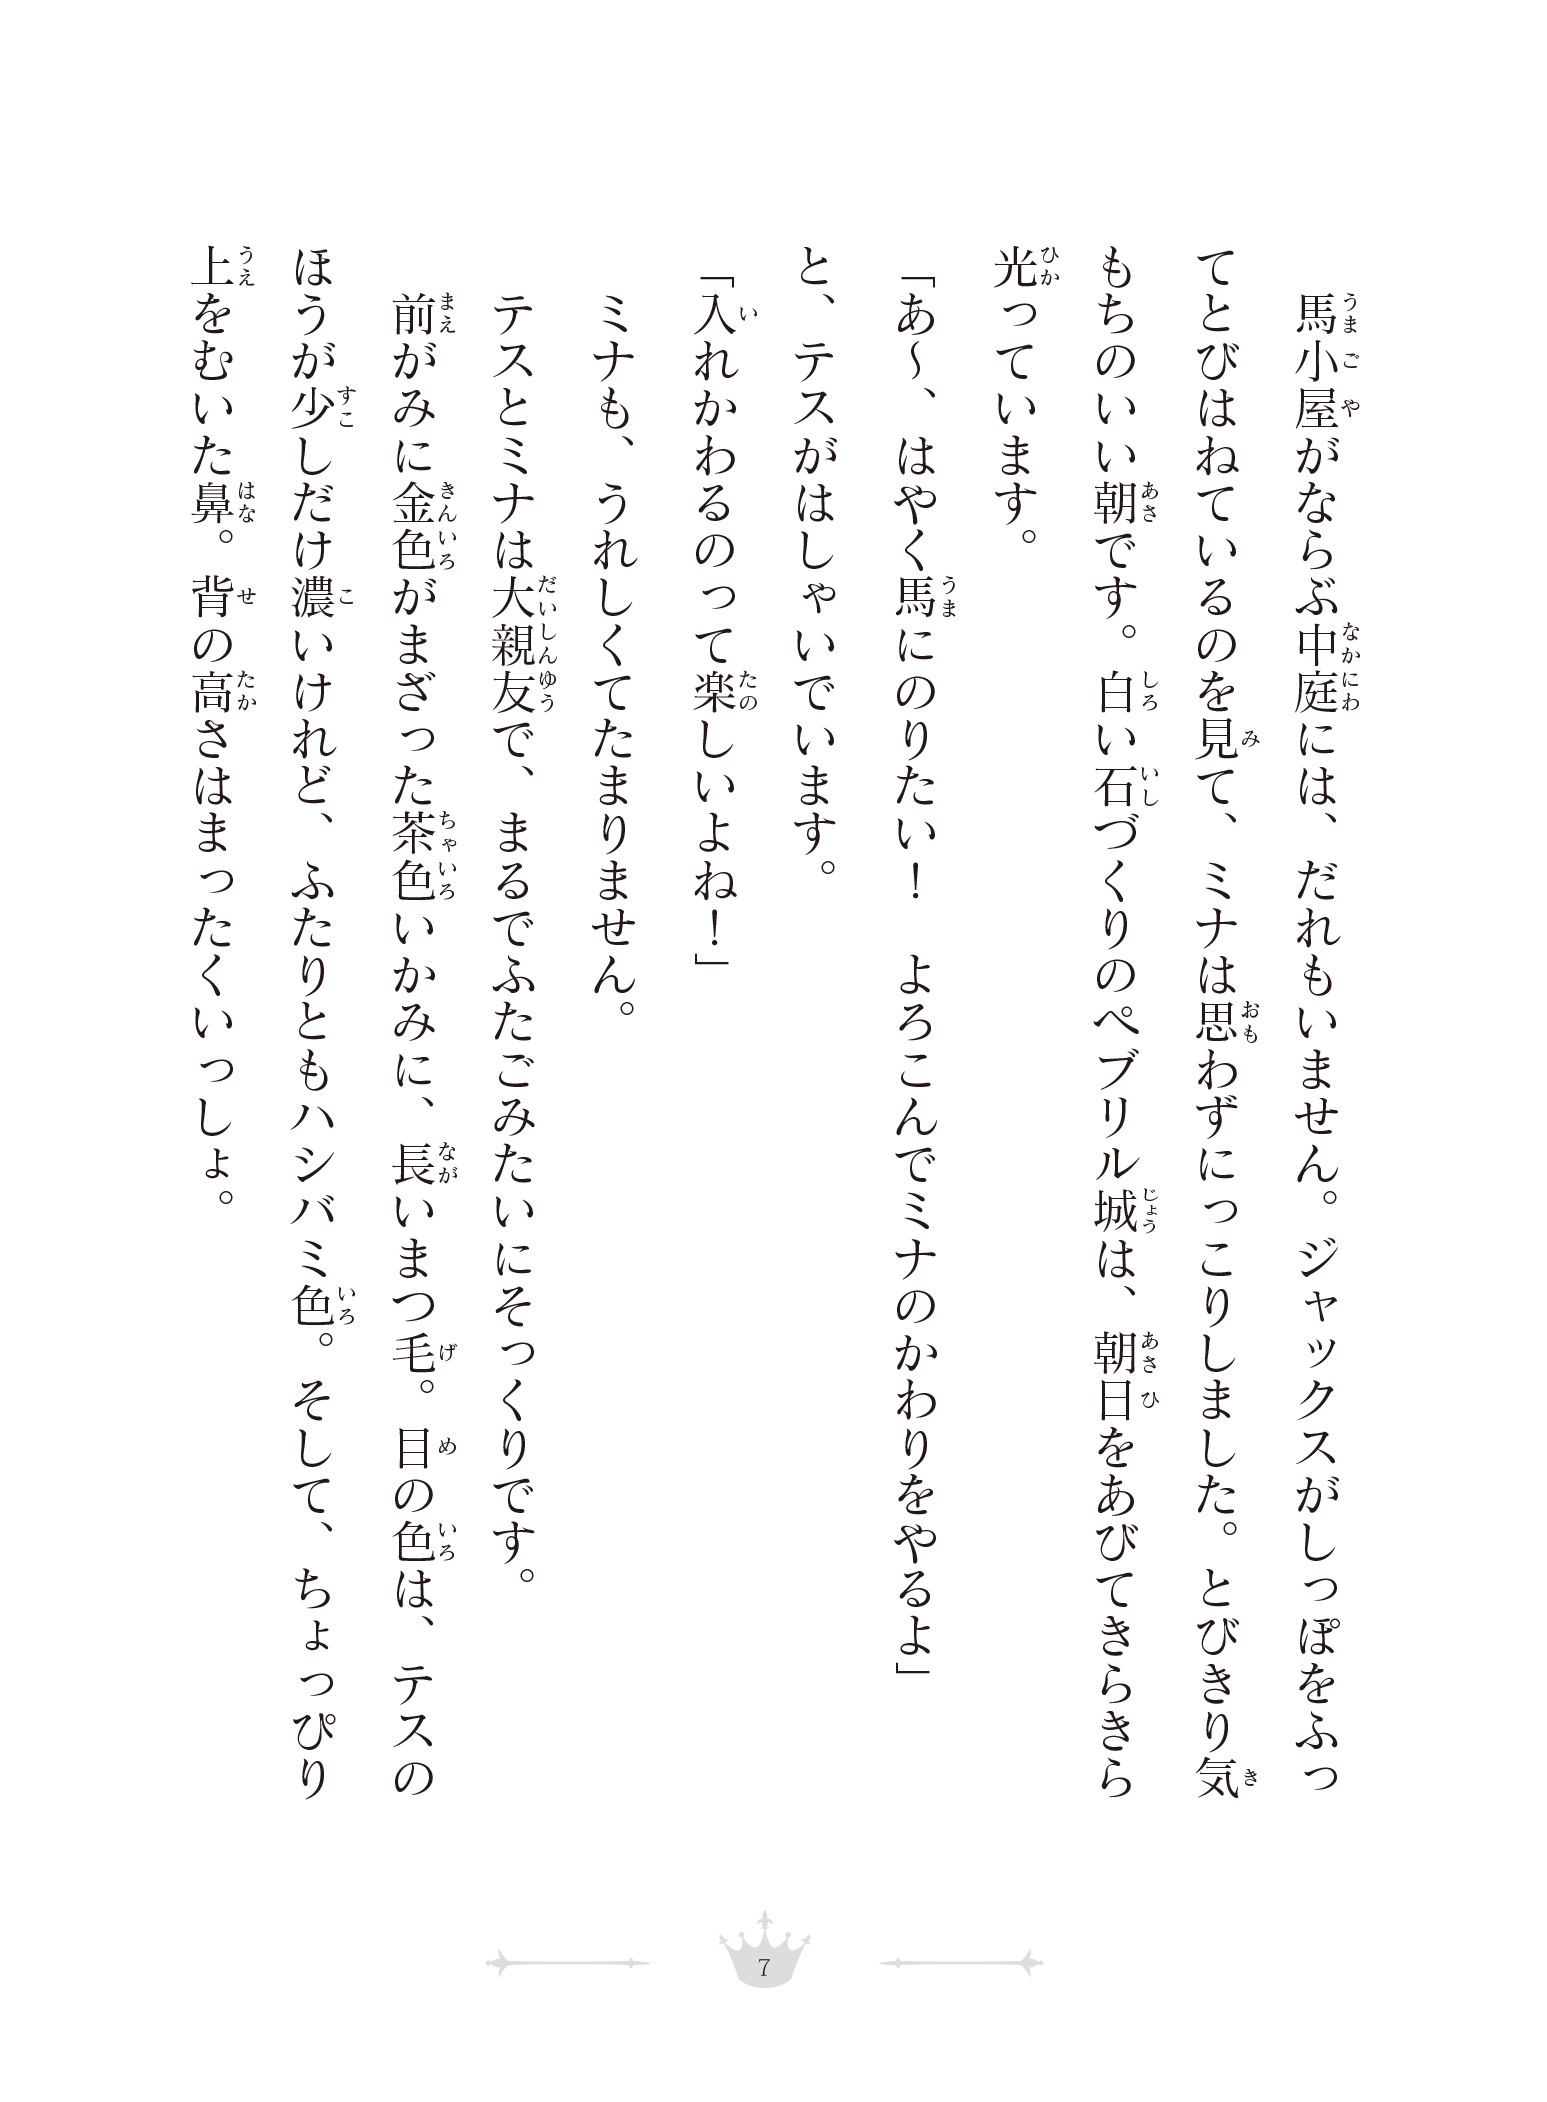 馬小屋がならぶ中庭には、だれもいません。ジャックスがしっぽをふっ
てとびはねているのを見て、ミナは思わずにっこりしました。とびきり気
もちのいい朝です。白い石づくりのペブリル城は、朝日をあびてきらきら
光っています。
「あ〜、はやく馬にのりたい！　よろこんでミナのかわりをやるよ」
と、テスがはしゃいでいます。
「入れかわるのって楽しいよね！」
　ミナも、うれしくてたまりません。
　テスとミナは大親友で、まるでふたごみたいにそっくりです。
　前がみに金色がまざった茶色いかみに、長いまつ毛。目の色は、テスの
ほうが少しだけ濃いけれど、ふたりともハシバミ色。そして、ちょっぴり
上をむいた鼻。背の高さはまったくいっしょ。
7